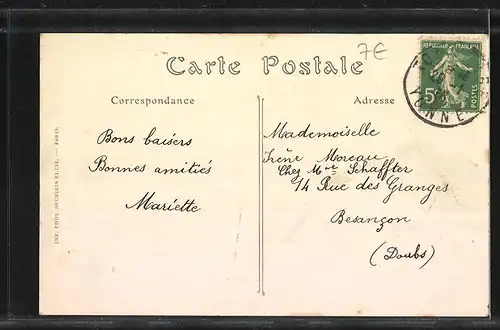 7€
Carte Postale
Correspondance
Adresse
REPUBLIQUE FRANÇAISE
5c
POSTES
YONNE
Bons baisers
Bonnes amitiés
Mariette
Mademoiselle
Irène Moreau
Chez Mme Schaffter
14 Rue des Granges
Besançon
(Doubs)